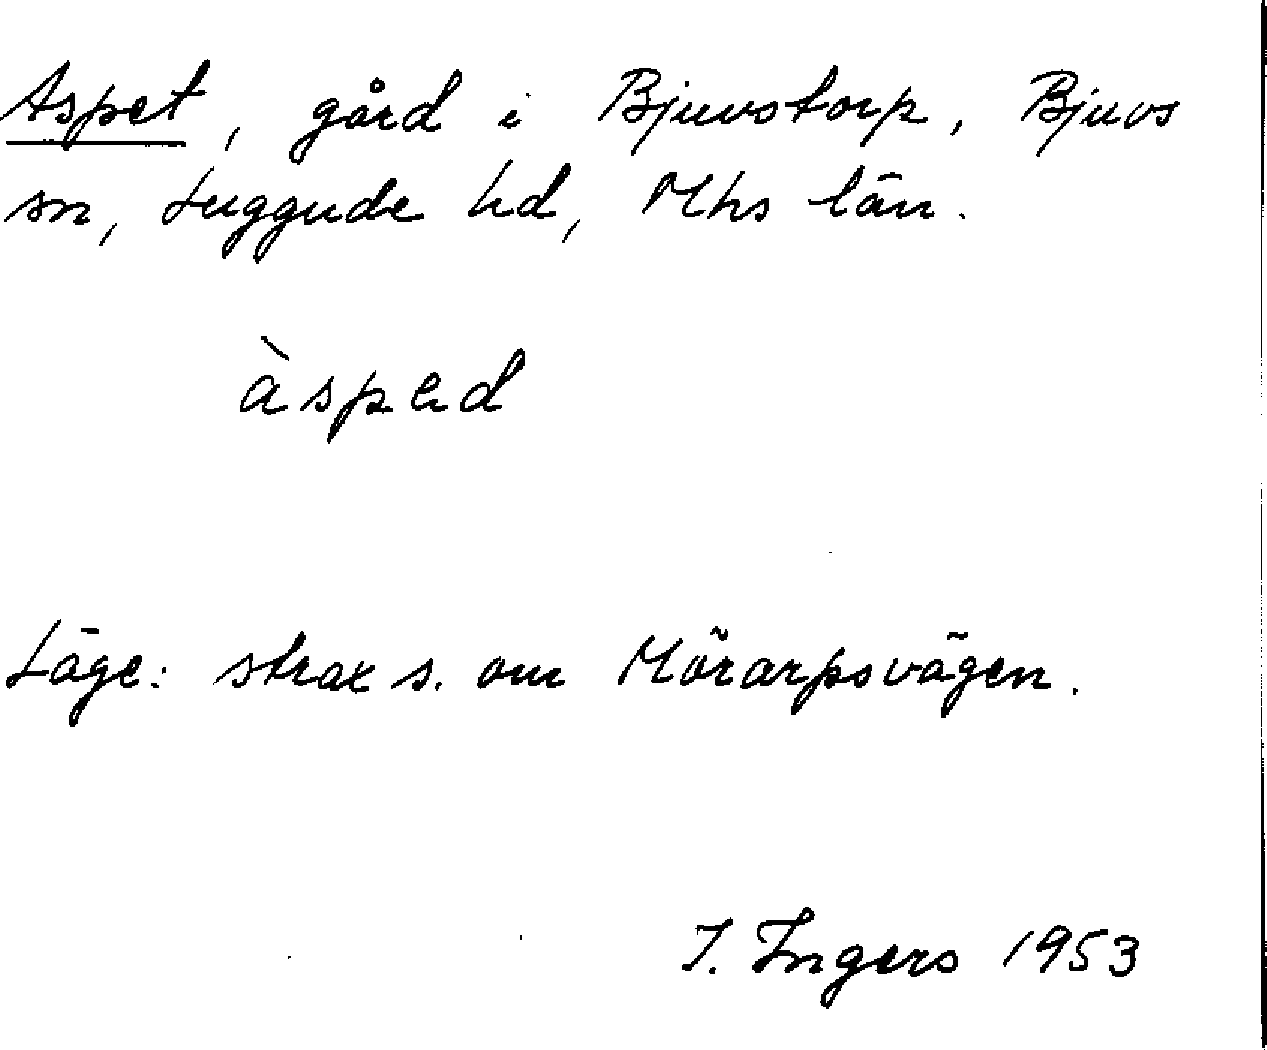 Aspet, gård i Bjuvstorp, Bjuvs
sn, Luggude hd, Mhs län.
àsped
Läge: strax s. om Mörarpsvägen.
I. Ingers 1953